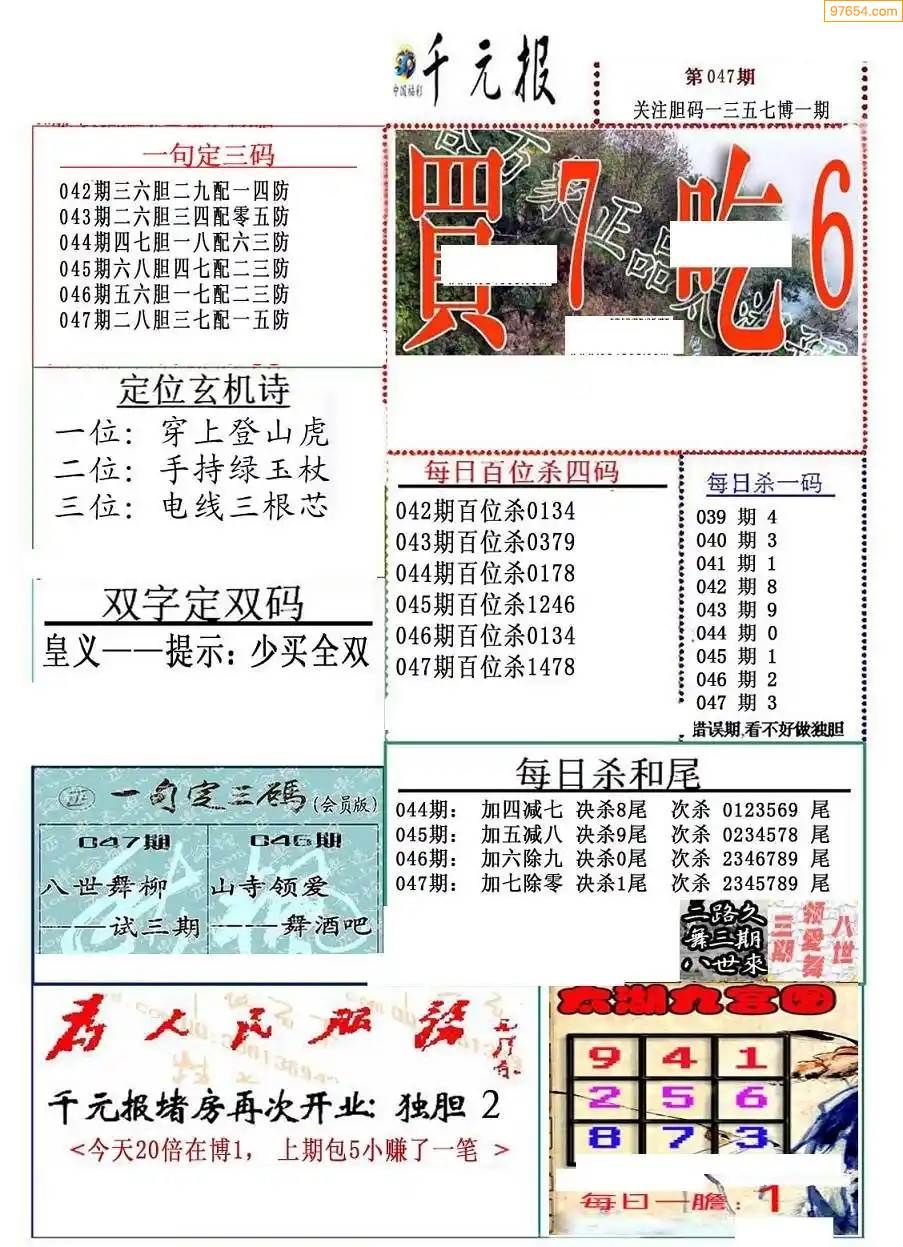 97654.com
中国福彩
千元报
第047期
关注胆码一三五七博一期
一句定三码
042期三六胆二九配一四防
043期二六胆三四配零五防
044期四七胆一八配六三防
045期六八胆四七配二三防
046期五六胆一七配二三防
047期二八胆三七配一五防
買7吃6
定位玄机诗
一位：穿上登山虎
二位：手持绿玉杖
三位：电线三根芯
每日百位杀四码
042期百位杀0134
043期百位杀0379
044期百位杀0178
045期百位杀1246
046期百位杀0134
047期百位杀1478
每日杀一码
039 期 4
040 期 3
041 期 1
042 期 8
043 期 9
044 期 0
045 期 1
046 期 2
047 期 3
错误期,看不好做独胆
双字定双码
皇义——提示：少买全双
一句定三碼(会员版)
047期
八世舞柳
——试三期
046期
山寺领爱
——舞酒吧
每日杀和尾
044期： 加四减七 决杀8尾 次杀 0123569 尾
045期： 加五减八 决杀9尾 次杀 0234578 尾
046期： 加六除九 决杀0尾 次杀 2346789 尾
047期： 加七除零 决杀1尾 次杀 2345789 尾
三路久
舞三期
八世來
八世
领愛舞
三期
为人民服務
千元报堵房再次开业：独胆 2
<今天20倍在博1， 上期包5小赚了一笔 >
太湖九宫图
9 4 1
2 5 6
8 7 3
每日一膽：1